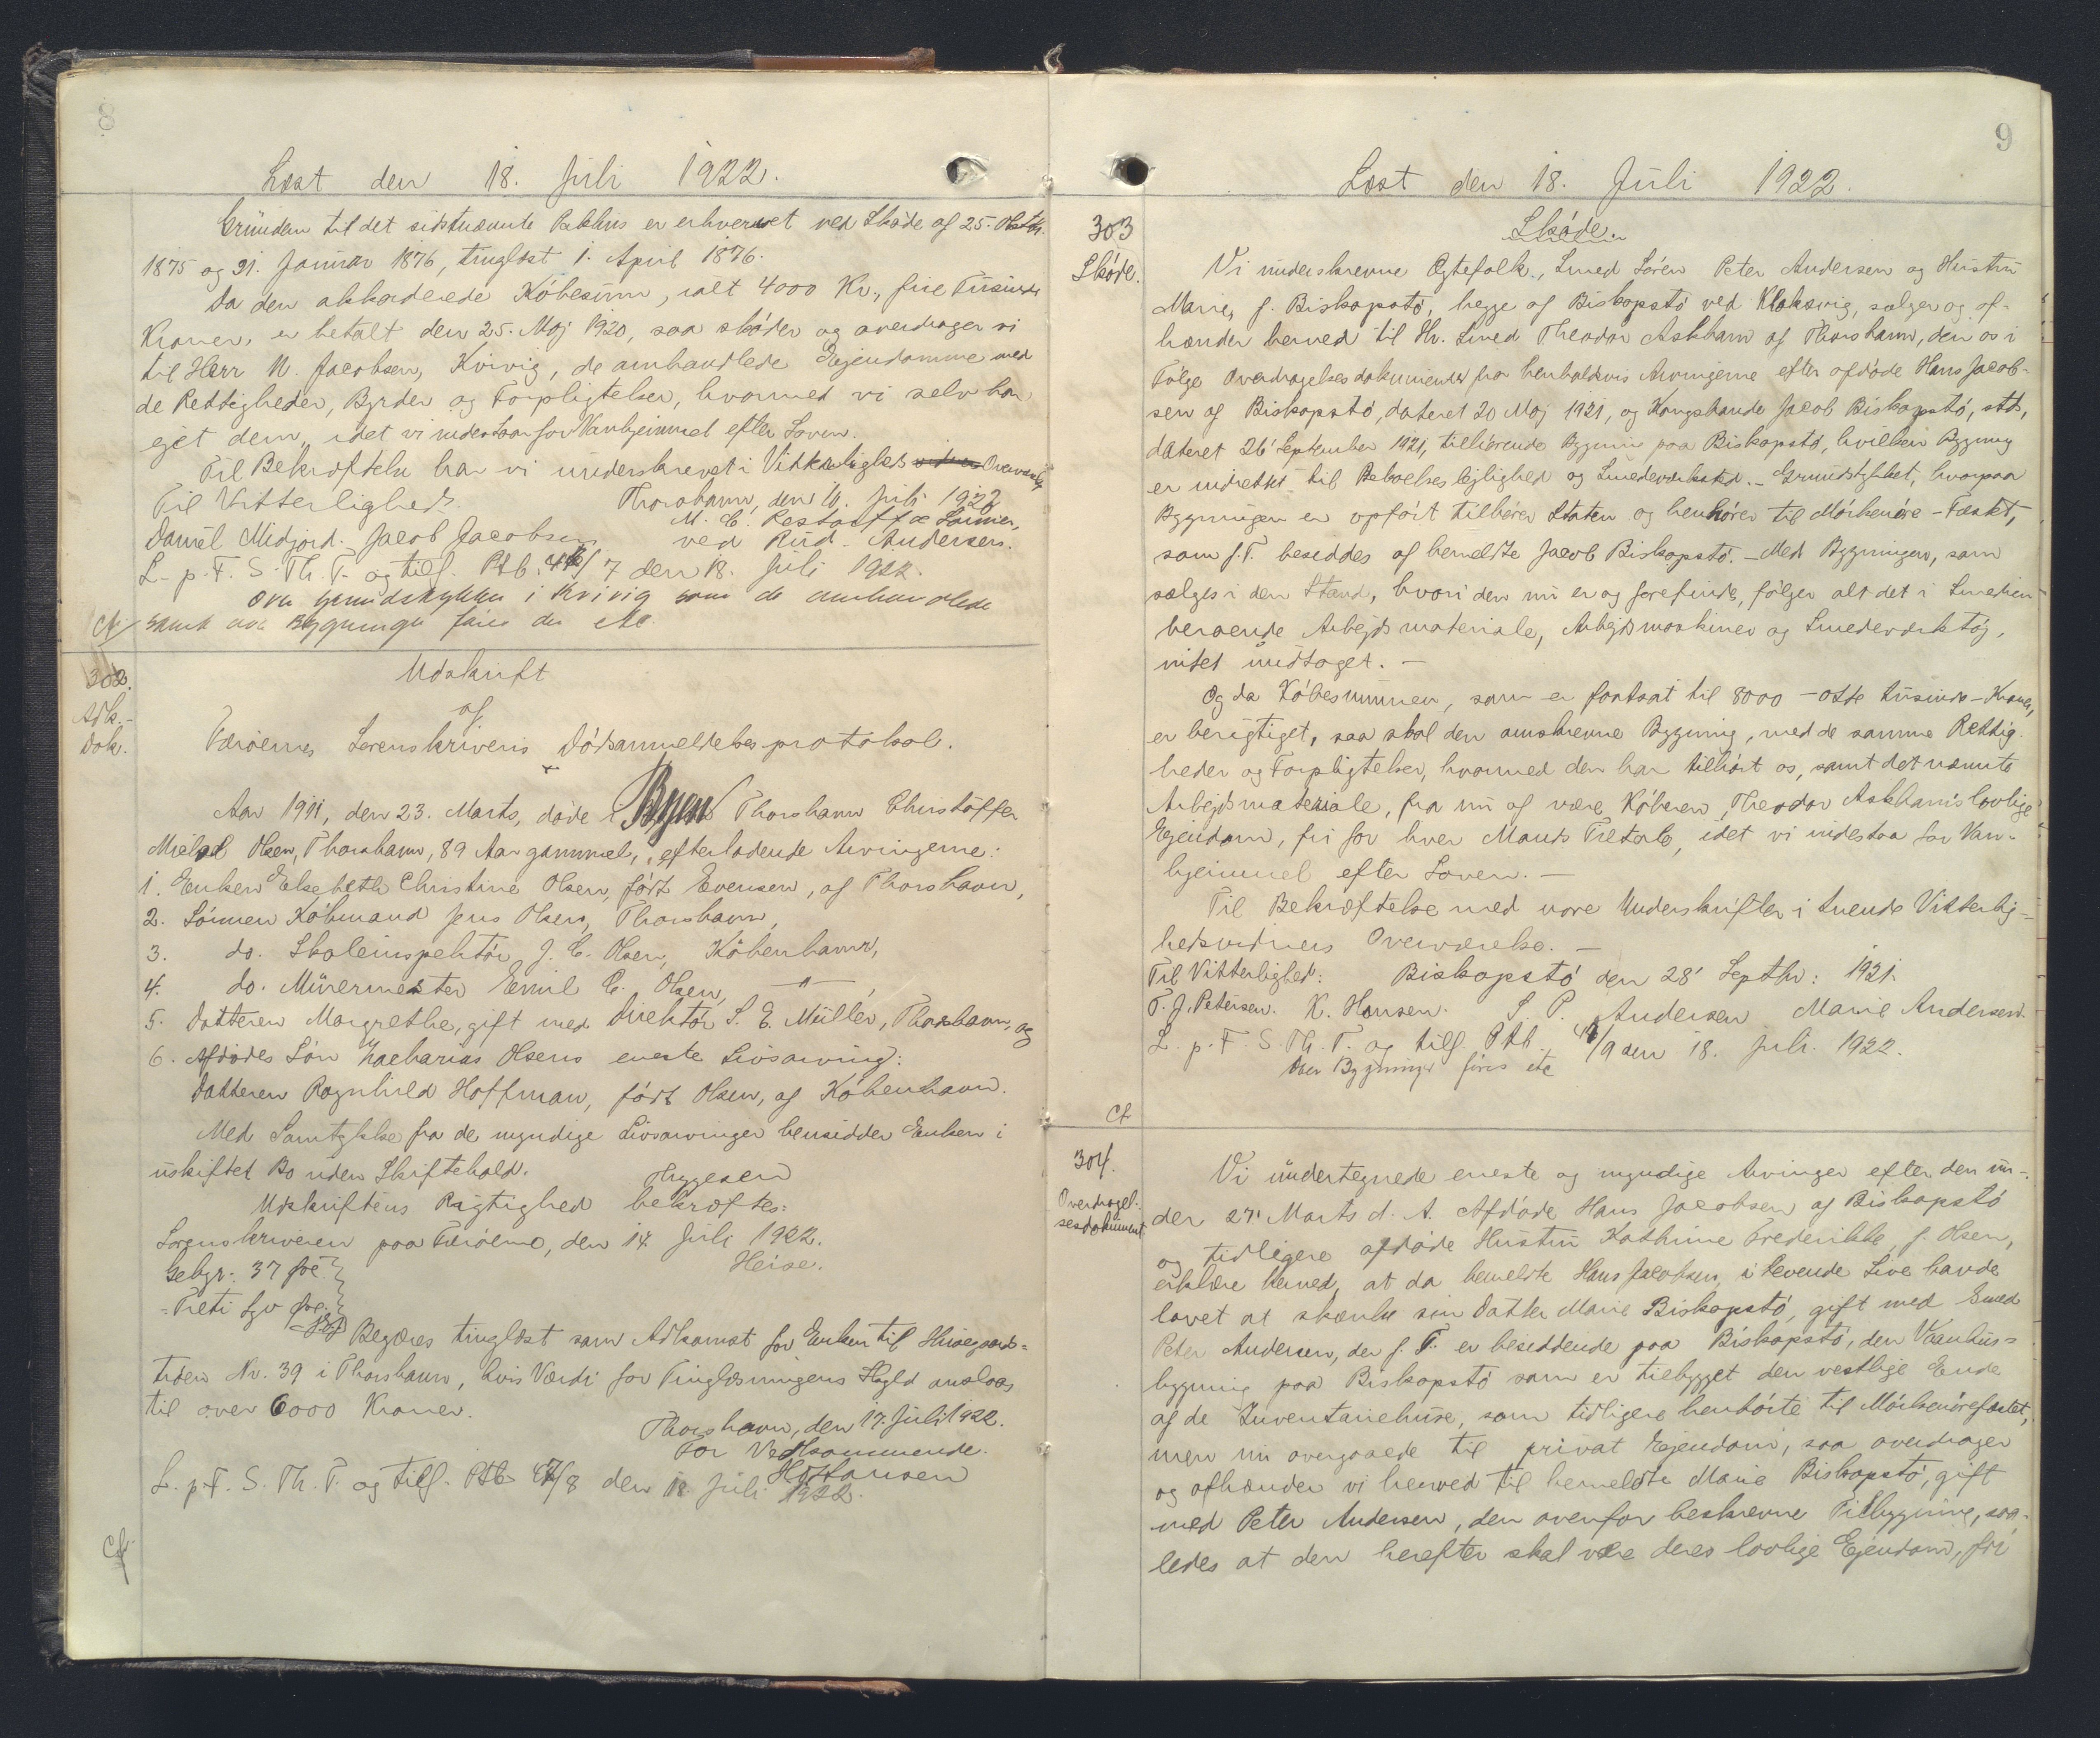 8
Læst den 18. Juli 1922.
Grunden til det sidstnævnte Pakhus er erhvervet ved Sköde af 25. Oktbr.
1875 og 31. Januar 1876, tinglæst 1. April 1876.
Da den akkorderede Köbesum, ialt 4000 Kr., fire Tusinde
Kroner, er betalt den 25. Maj 1920, saa sköder og overdrager vi
til Herr N. Jacobsen, Kvivig, de omhandlede Ejendomme med
de Rettigheder, Byrder og Forpligtelser, hvormed vi selv har
ejet dem, idet vi indestaar for Vanhjemmel efter Loven.
Til Bekræftelse har vi underskrevet i Vitterligheds Overværelse
Thorshavn, den Juli 1922
Til Vitterlighed. M. C. Restorff & Sönner,
Daniel Midjord. Jacob Jacobsen ved Rud. Andersen.
L. p. F. S. Th. T. og tilf. Ptb. 47/7 den 18. Juli 1922.
over Grundstykker i Kvivig som de omhandlede
Cf samt at Bygninger föres der etc
302.
Adk.-
Dok.
Udskrift
af
Færöernes Sorenskriveris Dödsanmeldelsesprotokol.
Aar 1911, den 23. Marts, döde i Byen Thorshavn Christoffer
Olsen, Thorshavn, 89 Aar gammel, efterladende Arvingerne:
1. Enken Elsebeth Christine Olsen, födt Evensen, af Thorshavn,
2. Sönnen Köbmand Jens Olsen, Thorshavn,
3. do. Skoleinspektör J. C. Olsen, Köbenhavn,
4. do. Murermester Emil C. Olsen, —"— ,
5. Datteren Margrethe, gift med Direktör S. E. Müller, Thorshavn, og
6. Afdödes Sön Zacharias Olsens eneste Livsarving:
Datteren Ragnhild Hoffman, födt Olsen, af Köbenhavn.
Med Samtykke fra de myndige Livsarvinger hensidder Enken i
uskiftet Bo uden Skiftehold.
Thygesen
Udskriftens Rigtighed bekræftes:
Sorenskriveren paa Færöerne, den 14. Juli 1922.
Heise.
Gebyr: 37 Øre
=Treti Syv Øre.
Begæres tinglæst som Adkomst for Enken til Husegrunds-
tiden Nr. 39 i Thorshavn, hvis Værdi for Tinglæsningens Skyld anslaas
til over 6000 Kroner.
Thorshavn, den 17. Juli 1922.
For Vedkommende.
L. p. F. S. Th. T. og tilf. Ptb 47/8 den 18. Juli 1922.
Cf.
9
Læst den 18. Juli 1922.
303
Sköde.
Sköde.
Vi underskrevne Ægtefolk, Smed Sören Peter Andersen og Hustru
Marie, f. Biskopstö, begge af Biskopstö ved Klaksvig, sælger og af-
hænder herved til Hr. Smed Theodor Askham af Thorshavn, den os i
Fölge Overdragelsesdokumenter fra henholdsvis Arvingerne efter afdöde Hans Jacob-
sen af Biskopstö, dateret 20 Maj 1921, og Kongsbonde Jacob Biskopstö, stds,
dateret 26' September 1921, tilhörende Bygning paa Biskopstö, hvilken Bygning
er indrettet til Beboelseslejlighed og Smedeværksted. - Grundstykket, hvorpaa
Bygningen er opfört tilhörer Staten og henhörer til Mörkenöre-Fæstet,
som f. T. besiddes af bemeldte Jacob Biskopstö. - Med Bygningen, som
sælges i den Stand, hvori den nu er og forefindes, fölger alt det i Smedien
beroende Arbejdsmateriale, Arbejdsmaskiner og Smedeværktöj,
intet undtaget. -
Og da Köbesummen, som er fastsat til 8000 - otte tusinde - Kroner,
er berigtiget, saa skal den omskrevne Bygning, med de samme Rettig-
heder og Forpligtelser, hvormed den har tilhört os, samt det nævnte
Arbejdsmateriale, fra nu af være Köberen, Theodor Askham's lovlige
Ejendom, fri for hver Mands Tiltale, idet vi indestaa for Van-
hjemmel efter Loven. -
Til Bekræftelse med vore Underskrifter i tvende Vitterlig-
hedsvidners Overværelse. -
Til Vitterlighed: Biskopstö den 28' Septbr: 1921.
T. J. Petersen. K. Hansen. S. P. Andersen Marie Andersen.
L. p. F. S. Th. T. og tilf. Ptb. 47/9 den 18. Juli. 1922.
Over Bygninger föres etc
Cf
304.
Overdragel-
sesdokument
Vi undertegnede eneste og myndige Arvinger efter den un-
der 27' Marts d. A. Afdöde Hans Jacobsen af Biskopstö
og tidligere afdöde Hustru Kathrine Frederikke, f. Olsen,
erklære herved, at da bemeldte Hans Jacobsen i levende Live havde
lovet at skænke sin Datter Marie Biskopstö, gift med Smed
Peter Andersen, der f. T. er besiddende paa Biskopstö, den Vaanhus-
bygning paa Biskopstö som er tilbygget den vestlige Ende
af de Inventariehuse, som tidligere henhörte til Mörkenörefæstet,
men nu overgaaede til privat Ejendom, saa overdrager
og afhænder vi herved til bemeldte Marie Biskopstö, gift
med Peter Andersen, den ovenfor beskrevne Tilbygning, saa-
ledes at den herefter skal være deres lovlige Ejendom, fri